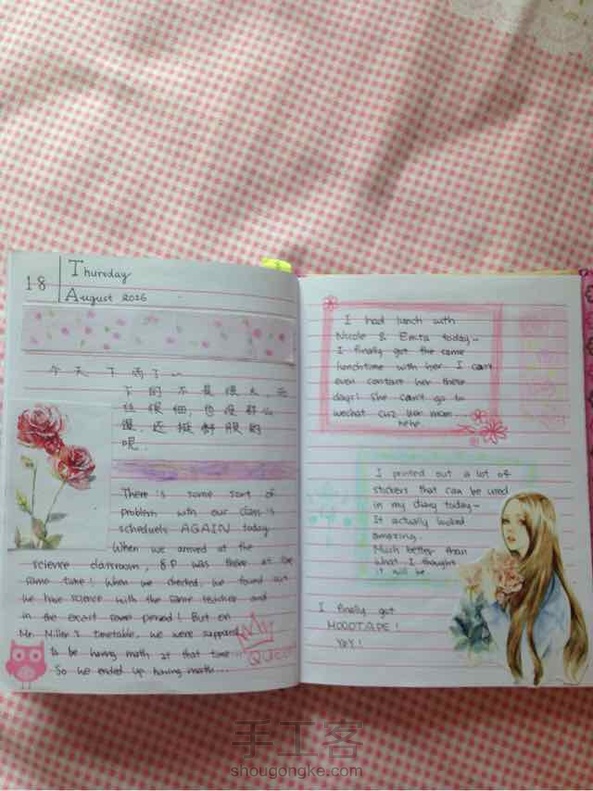 18
Thursday
August 2016
今天下雨了～
下的不是很大，雨
丝很细，也没那么
湿，还挺舒服的
呢．
There is some sort of
problem with our class's
schedule's AGAIN today.
When we arrived at the
science classroom, 8P was there at the
same time! When we checked, we found out
we have science with the same teacher and
in the exact same period! But on
Mr. Miller's timetable, we were supposed
to be having math at that time...
So we ended up having math...
Queen
I had lunch with
Nicole & Emita today~
I finally got the same
lunchtime with her. I can't
even contact her these
days! She can't go to
wechat cuz her mom
hehe
I printed out a lot of
stickers that can be used
in my diary today~
It actually looked
amazing.
Much better than
what I thought
it will be.
I finally got
YAY!
手工客
shougongke.com